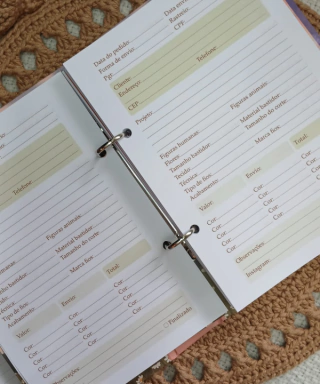 Telefone:
Figuras animais:
Material bastidor:
Tamanho do corte:
Figuras humanas:
Marca fios:
Material bastidor:
Tamanho bastidor:
Tecido
Técnica
Tipo de fios
Acabamento
Total:
Valor:
Envio:
Cor: Cor:
Cor: Cor:
Cor: Cor:
Cor: Cor:
Finalizado
Observações:
Data do pedido: Data envio:
Forma de envio: Rastreio:
Pgt CPF:
Cliente: Telefone:
Endereço:
CEP:
Projeto:
Figuras humanas: Figuras animais:
Flores Material bastidor:
Tamanho bastidor: Tamanho do corte:
Tecido
Técnica Marca fios:
Tipo de fios
Acabamento
Valor: Envio: Total:
Cor: Cor: Cor:
Cor: Cor: Cor:
Cor: Cor: Cor:
Cor: Cor: Cor:
Observações:
Instagram: